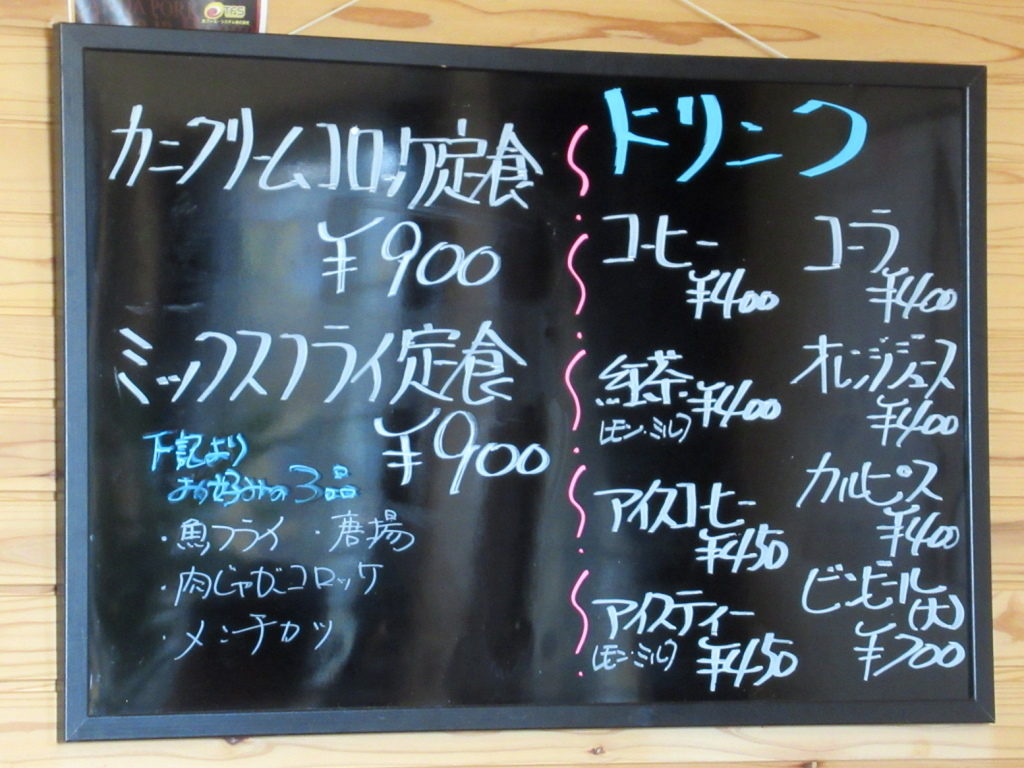 T&S
カニクリームコロッケ定食
¥900
ミックスフライ定食
¥900
下記より
お好みの3品
・魚フライ ・唐揚
・肉じゃがコロッケ
・メンチカツ
ドリンク
コーヒー
¥400
紅茶 ¥400
(レモン・ミルク)
アイスコーヒー
¥450
アイスティー
(レモン・ミルク) ¥450
コーラ
¥400
オレンジジュース
¥400
カルピス
¥400
ビンビール(大)
¥700